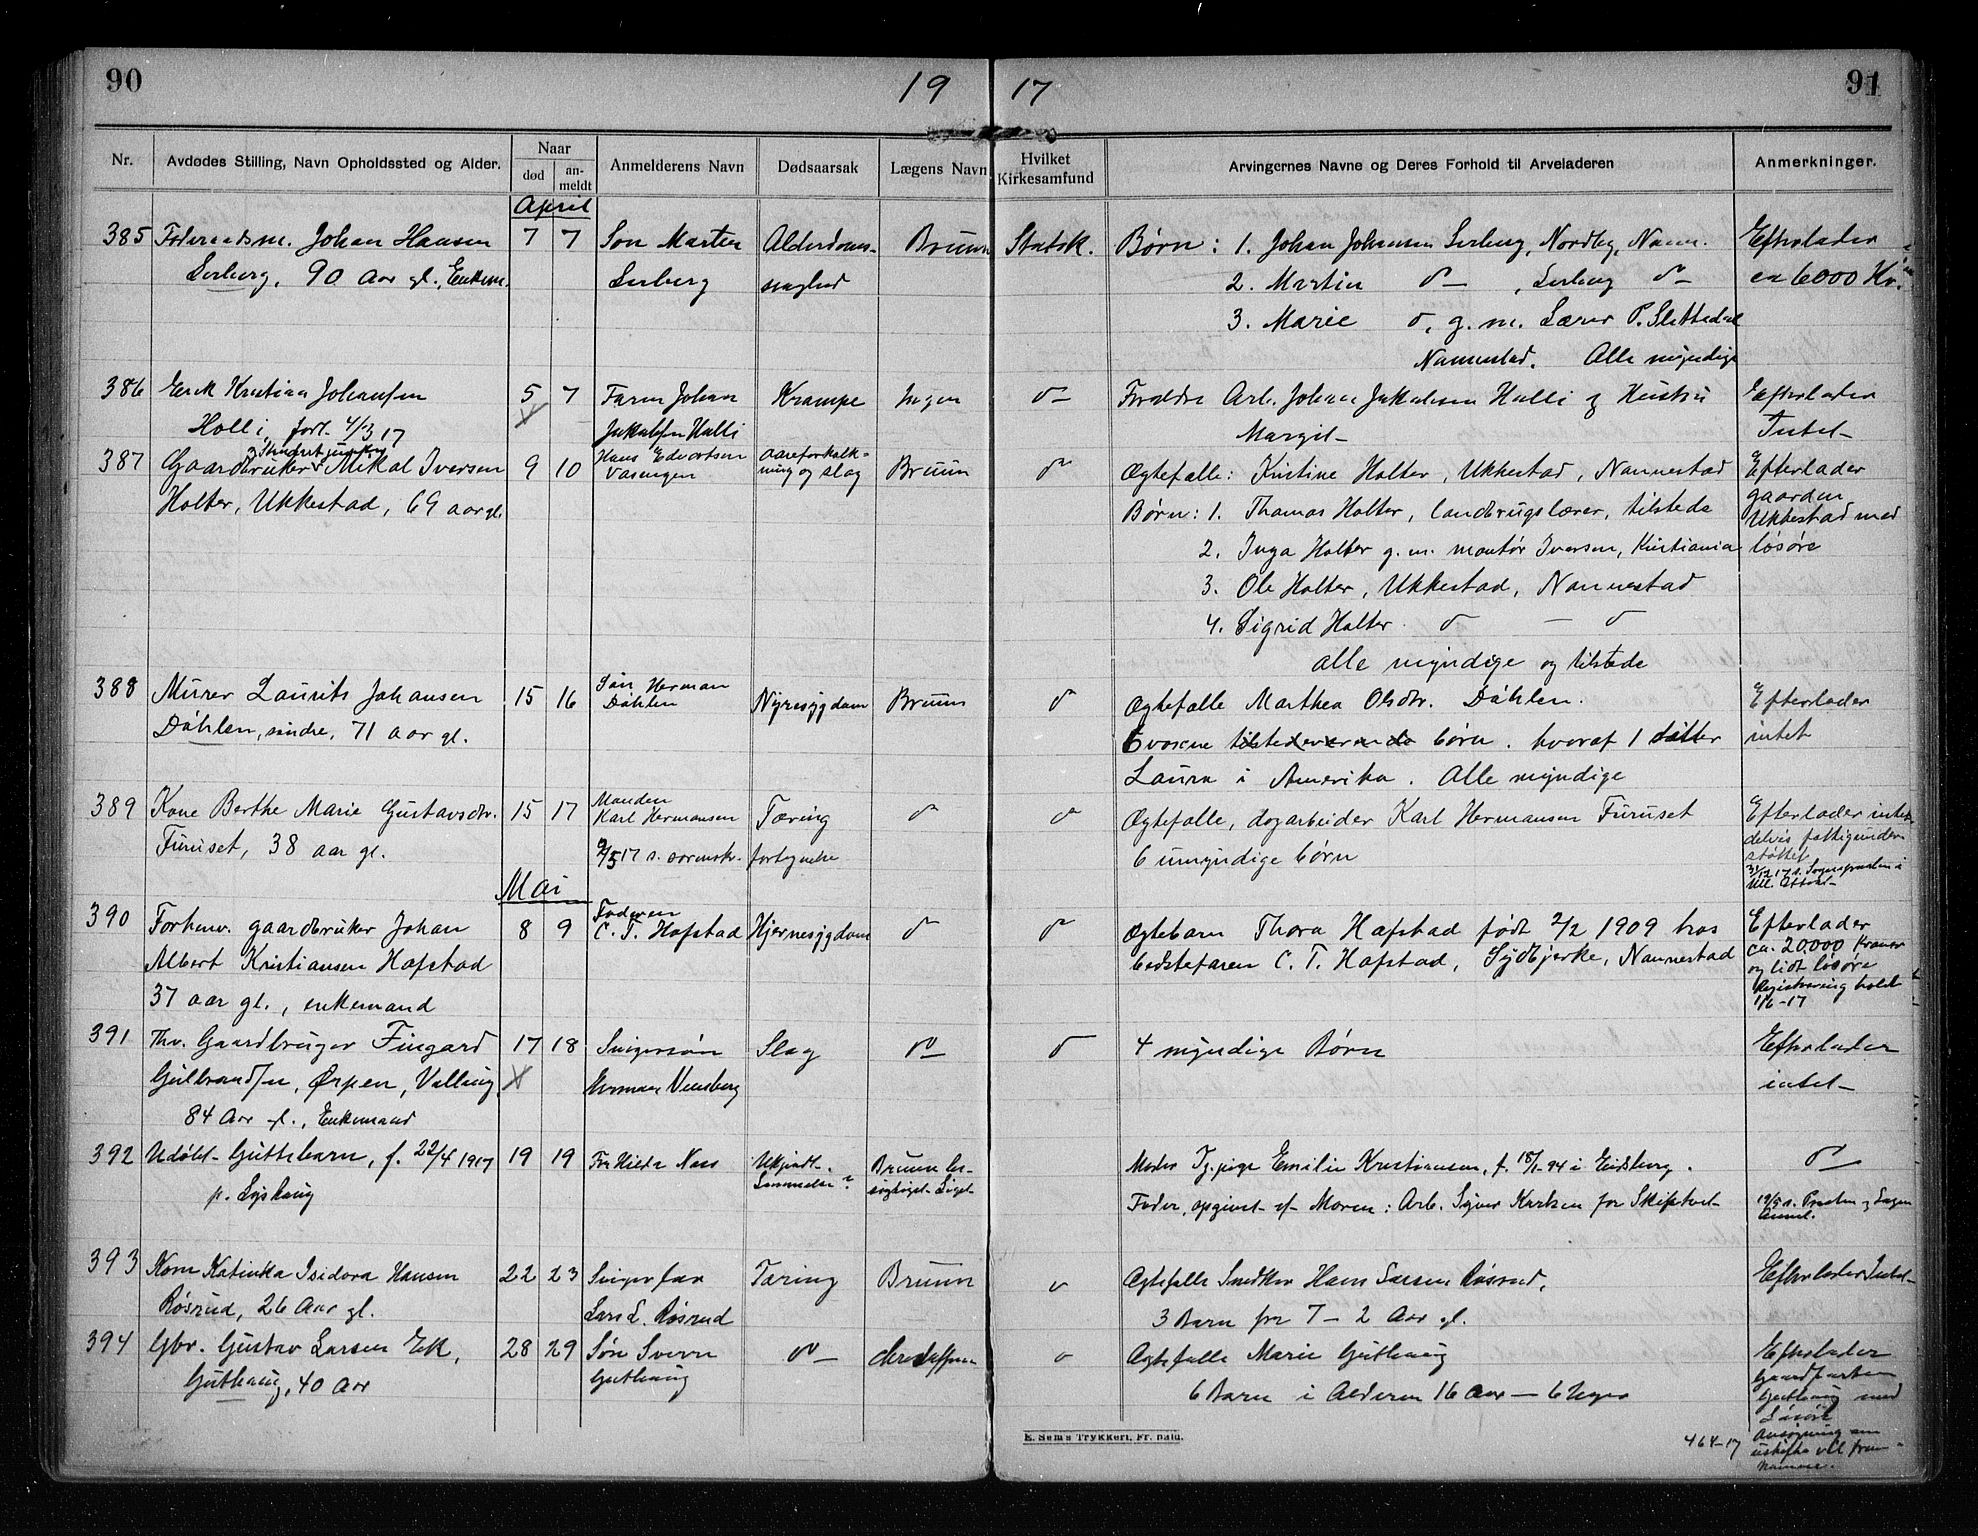 90
19 17
91
Nr.
Avdødes Stilling, Navn Opholdssted og Alder.
Naar
død
an-
meldt
Anmelderens Navn
Dødsaarsak
Lægens Navn
Hvilket
Kirkesamfund
Arvingernes Navne og Deres Forhold til Arveladeren
Anmerkninger.
April
385 Føderaadsm. Johan Hansen 7 7 Søn Martin Alderdoms- Bruun Statsk. Børn: 1. Johan Johansen Serberg, Nordby, Nann. Efterlader
Serberg, 90 Aar gl., Enkem. Serberg svaghed 2. Martin do , Serberg do ca 6000 Kr.
3. Marie do, g. m. Lærer P. Slettedal
Nannestad. Alle myndige
386 Erik Kristian Johansen 5 7 Faren Johan Krampe Ingen do Forældre Arb. Johan Jakobsen Holli og Hustru Efterlader
Holli, født 4/3 17 Jakobsen Holli Margit Intet
387 Gaardbruker Mikal Iversen 9 10 Hans Edvartsen aareforkalk- Bruun do Ægtefælle: Kristine Holter, Ukkestad, Nannestad Efterlader
Vasengen ning og slag gaarden
Holter, Ukkestad, 69 aar gl. Børn: 1. Thomas Holter, landbrugslærer, tilstede Ukkestad med
2. Inga Holter g. m. montør Iversen, Kristiania løsøre
3. Ole Holter, Ukkestad, Nannestad
4. Sigrid Holter do – do
alle myndige og tilstede
388 Murer Laurits Johansen 15 16 Søn Herman Nyresygdom Bruun do Ægtefælle Marthea Olsdtr. Dåhlen. Efterlader
Dåhlen, søndre, 71 aar gl. Dåhlen 6 voxne tilstedeværende børn. hvoraf 1 datter intet
Laura i Amerika. Alle myndige
389 Kone Berthe Marie Gustavsdtr. 15 17 Manden Tæring do do Ægtefælle, dagarbeider Karl Hermansen Furuset Efterlader intet
Karl Hermansen
Furuset, 38 aar gl. 9/5 17 s. formsk. fortegnelse 6 umyndige børn delvis fattigunder-
støttet
Mai
390 Forhenv. gaardbruker Johan 8 9 Faderen Hjernesygdom do do Ægtebarn Thora Hafstad født 2/2 1909 hos Efterlader
C. T. Hafstad
Albert Kristiansen Hafstad bedstefaren C. T. Hafstad, Sydbjerke, Nannestad ca. 20,000 kroner
og lidt løsøre
37 aar gl., enkemand Registrering holdt
1/6-17
391 Fhv. Gaardbruger Fingard 17 18 Svigersøn Slag do do 4 myndige Børn Efterlader
Gulbrandsen, Ørpen, Herman Vensberg intet
84 Aar gl., Enkemand
392 Udøbt Guttebarn, f. 22/4 1917 19 19 Fru Hilda Næss Ukjendt. Bruun be- Moder Tj.pige Emilie Kristiansen, f. 18/1-94 i Eidsberg. do
sigtiget Liget
Fader, opgivet af Moren: Arb. Syver Karlsen fra Skiptvet 19/5 s. Presten og Lægen
393 Kone Katinka Isidora Hansen 22 23 Svigerfar Tæring Bruun do Ægtefælle Snedker Hans Larsen Røsrud, Efterlader Intet
Røsrud, 26 Aar gl. Lars L. Røsrud 3 Barn fra 7 – 2 Aar gl.
394 Gbr. Gustav Larsen Ek, 28 29 Søn Sverre do do Ægtefælle Marie Guthaug Efterlader
Guthaug, 40 Aar Guthaug 6 Barn i Alderen 16 Aar – 6 Uger Gaardparten
Guthaug med
Løsøre
464-17 Ansøgning om
E. Sem's Trykkeri, Fr.hald.